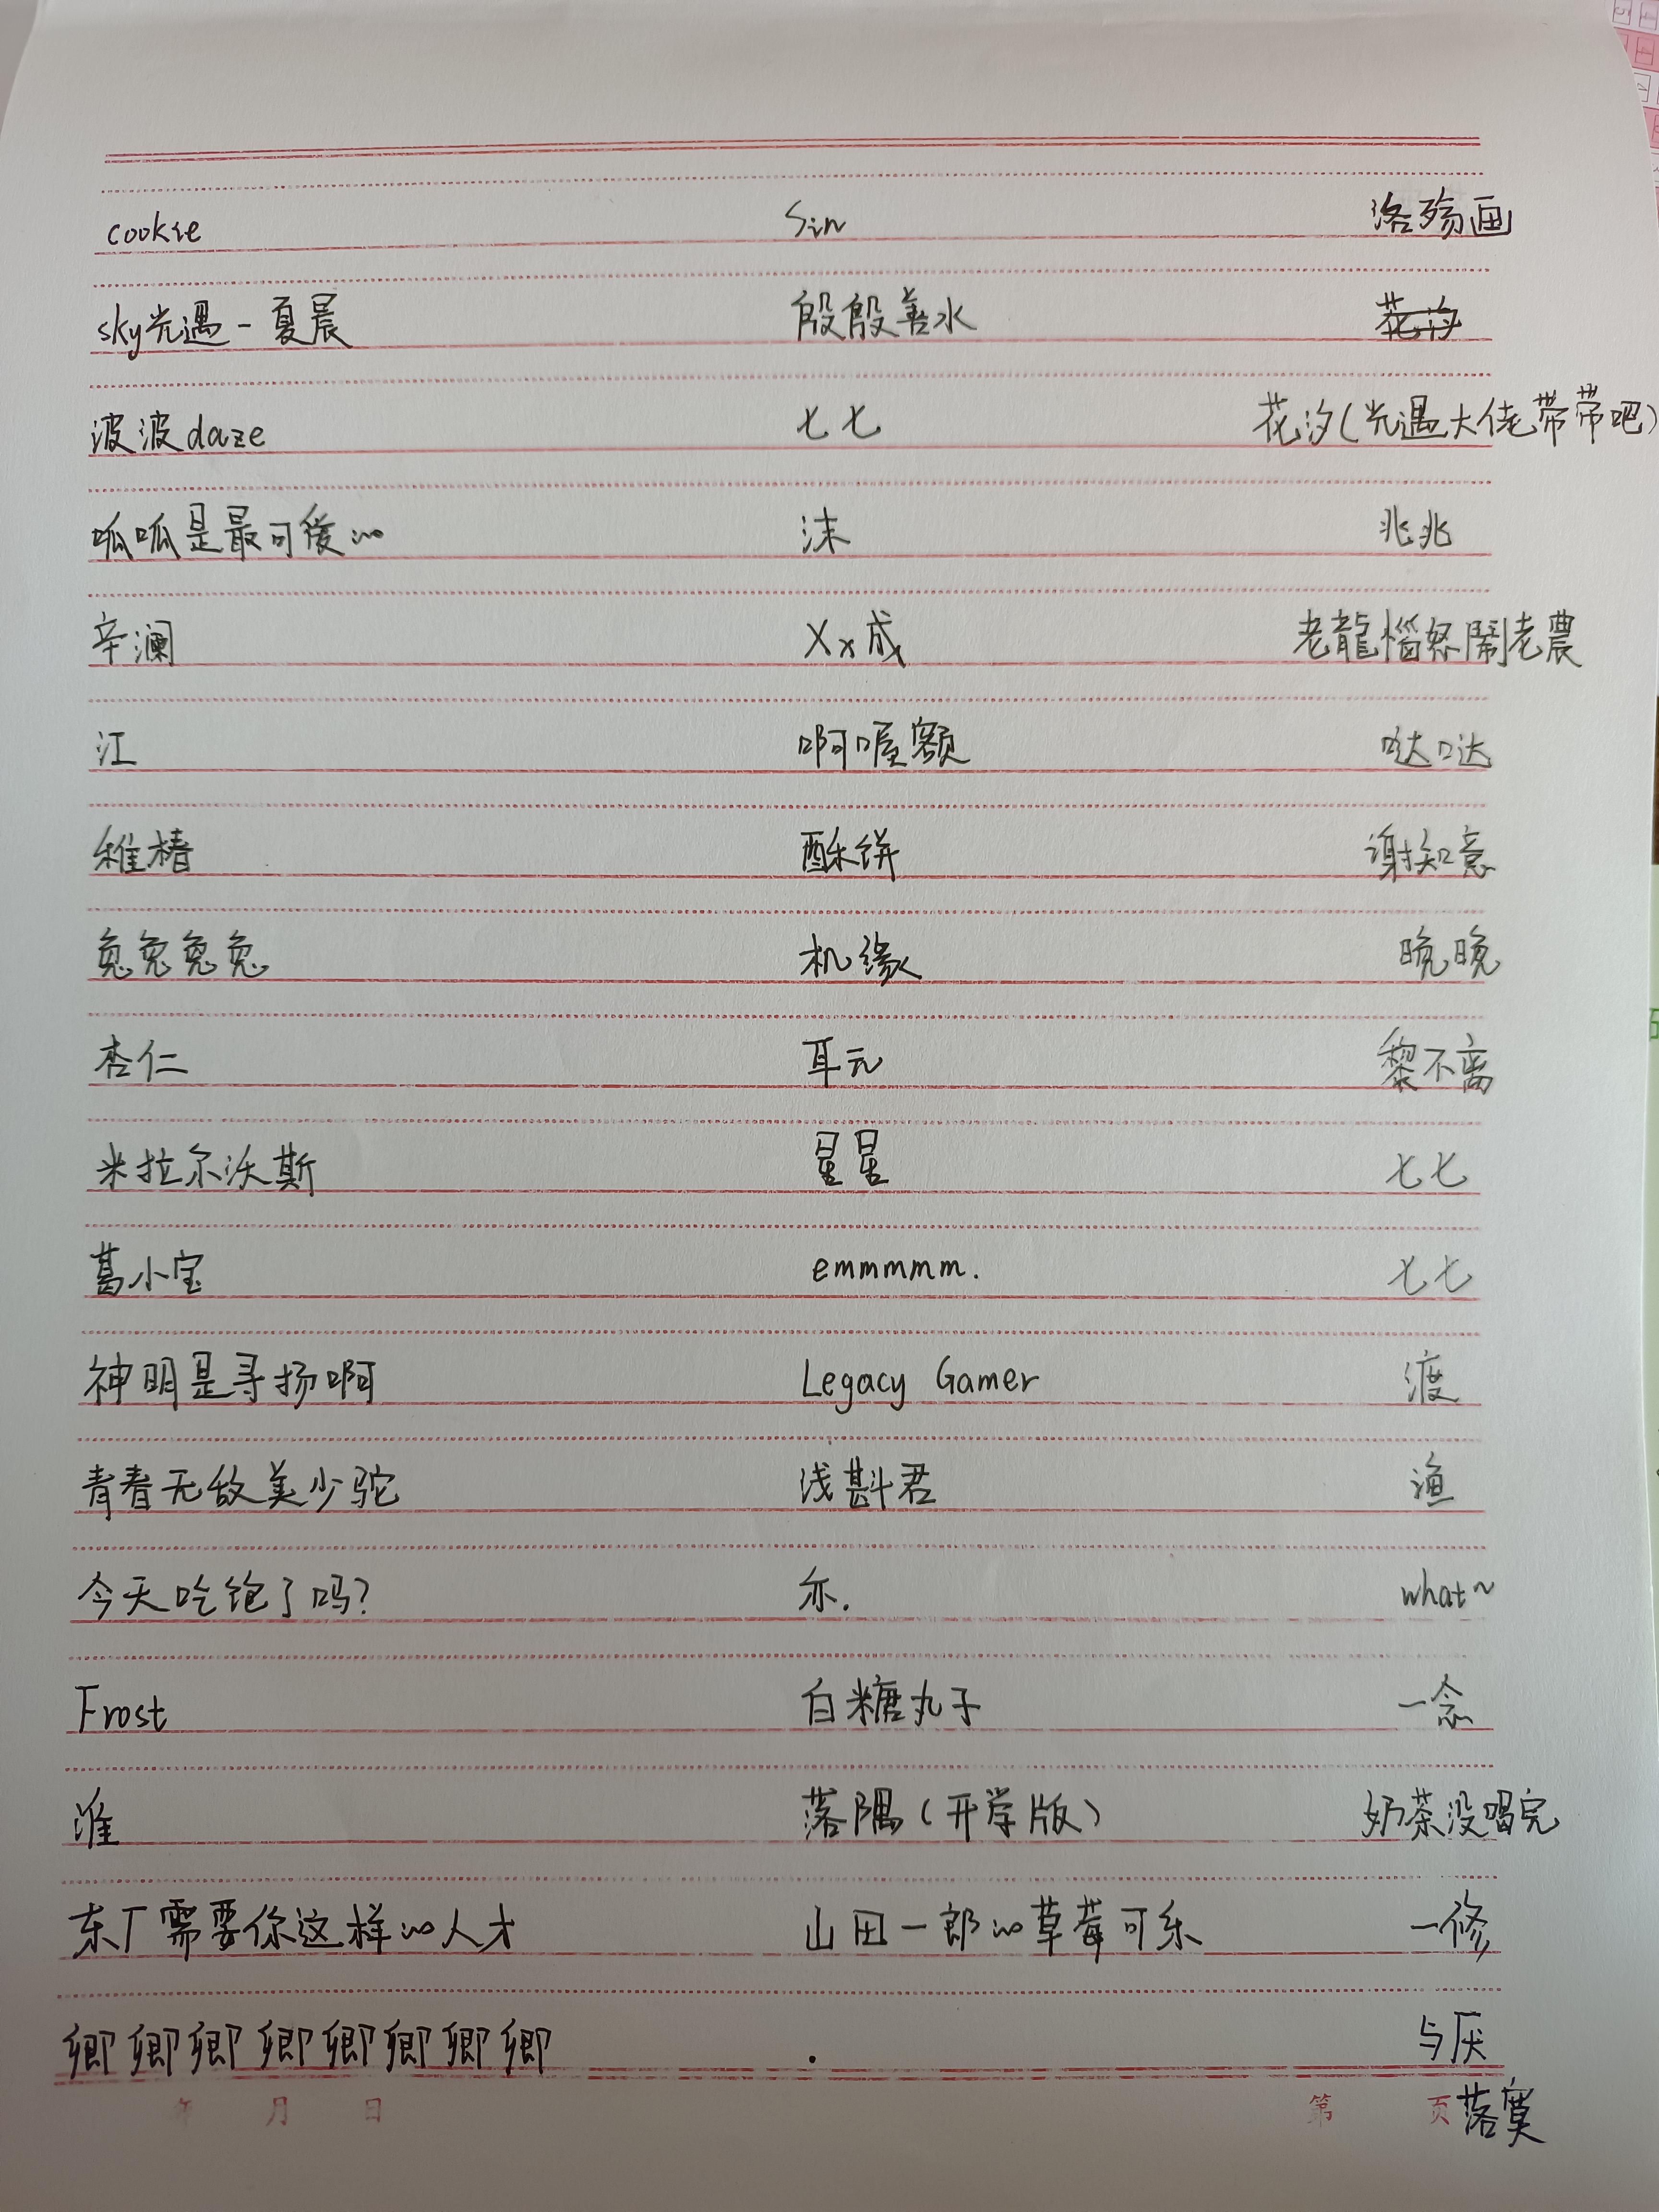 cookie Sin 洛殇画
sky光遇-夏晨 殷殷善水
波波daze 七七 花汐(光遇大佬带带吧)
呱呱是最可爱的 沫 兆兆
辛澜 Xx成 老龍惱怒鬧老農
江 啊喔额 哒哒
稚椿 酥饼 谢知意
兔兔兔兔 机缘 晚晚
杏仁 耳元 黎不离
米拉尔沃斯 星星 七七
葛小宝 emmmmm. 七七
神明是寻扬啊 Legacy Gamer 渡
青春无敌美少驼 浅斟君 渔
今天吃饱了吗? 亦. what~
Frost 白糖丸子 一念
淮 落隅(开学版) 奶茶没喝完
东厂需要你这样的人才 山田一郎的草莓可乐 一修
卿卿卿卿卿卿卿卿 . 与厌
年 月 日 第 页 落寞